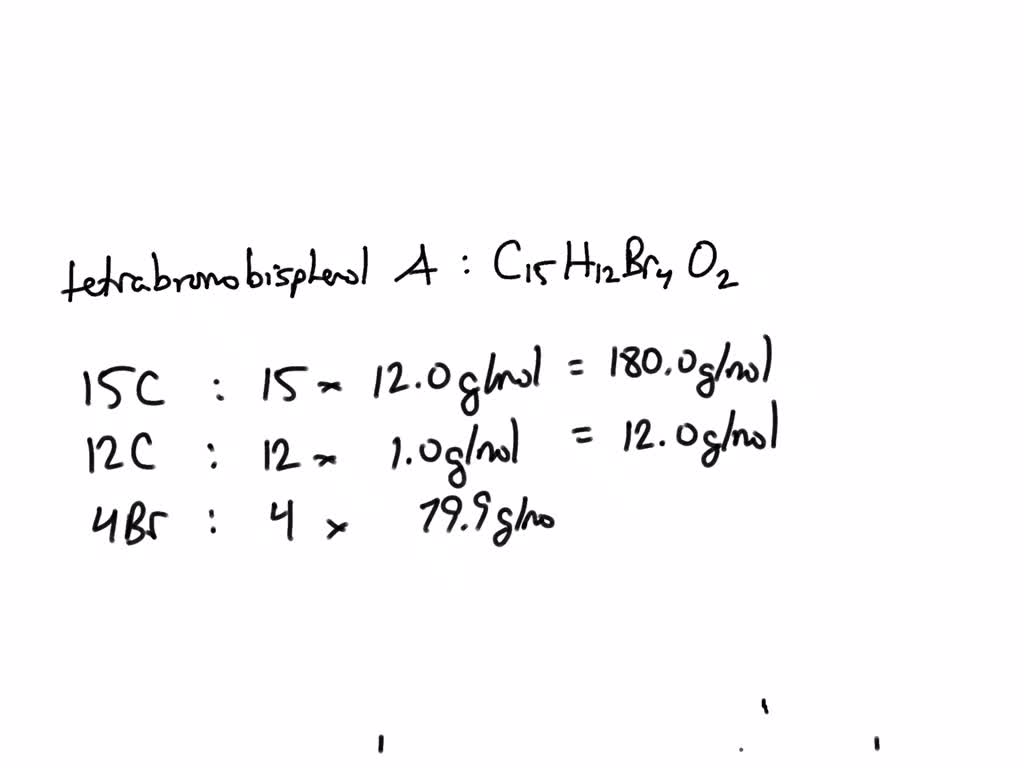 tetrabromobisphenol A : C₁₅H₁₂Br₄O₂
15C : 15 × 12.0 g/mol = 180.0 g/mol
12C : 12 × 1.0 g/mol = 12.0 g/mol
4Br : 4 × 79.9 g/mo